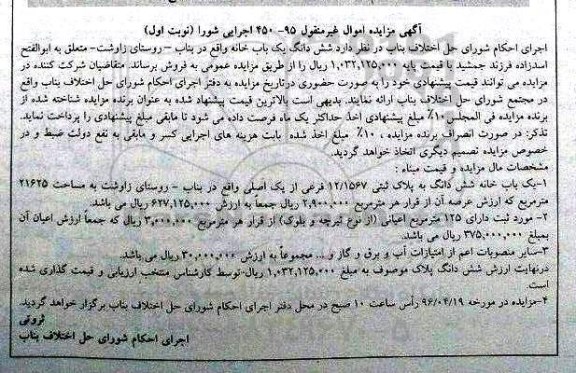 آگهی مزایده اموال غیرمنقول ۹۵- ۴۵۰ اجرایی شورا (نوبت اول)
اجرای احکام شورای حل اختلاف بناب در نظر دارد شش دانگ یک باب خانه واقع در بناب - روستای زاوشت- متعلق به ابوالفتح
اسدزاده فرزند جمشید با قیمت پایه ۱,۰۳۲,۱۲۵,۰۰۰ ریال را از طریق مزایده عمومی به فروش برساند. متقاضیان شرکت کننده در
مزایده می توانند قیمت پیشنهادی خود را به صورت حضوری در تاریخ مزایده به دفتر اجرای احکام شورای حل اختلاف بناب واقع
در مجتمع شورای حل اختلاف بناب ارائه نمایند. بدیهی است بالاترین قیمت پیشنهاد شده به عنوان برنده مزایده شناخته شده از
برنده مزایده فی المجلس ۱۰٪ مبلغ پیشنهادی اخذ حداکثر یک ماه فرصت داده می شود تا مابقی مبلغ پیشنهادی را پرداخت نماید.
تذکر: در صورت انصراف برنده مزایده ، ۱۰٪ مبلغ اخذ شده بابت هزینه های اجرایی کسر و مابقی به نفع دولت ضبط و در
خصوص مزایده تصمیم دیگری اتخاذ خواهد گردید.
مشخصات مال مزایده و قیمت مبناء :
۱-یک باب خانه شش دانگ به پلاک ثبتی ۱۲/۱۵۶۷ فرعی از یک اصلی واقع در بناب - روستای زاوشت به مساحت ۲۱۶۲۵
مترمربع که ارزش عرصه آن از قرار هر مترمربع ۲,۹۰۰,۰۰۰ ریال جمعاً به ارزش ۶۲۷,۱۲۵,۰۰۰ ریال می باشد.
۲- مورد ثبت دارای ۱۲۵ مترمربع اعیانی (از نوع تیرچه و بلوک) از قرار هر مترمربع ۳,۰۰۰,۰۰۰ ریال که جمعاً ارزش اعیان آن
بمبلغ ۳۷۵,۰۰۰,۰۰۰ ریال می باشد.
۳-سایر منصوبات اعم از امتیازات آب و برق و گاز و... مجموعاً به ارزش ۳۰,۰۰۰,۰۰۰ ریال می باشد.
درنهایت ارزش شش دانگ پلاک موصوف به مبلغ ۱,۰۳۲,۱۲۵,۰۰۰ ریال-توسط کارشناس منتخب ارزیابی و قیمت گذاری شده
است.
۴-مزایده در مورخه ۹۶/۰۴/۱۹ رأس ساعت ۱۰ صبح در محل دفتر اجرای احکام شورای حل اختلاف بناب برگزار خواهد گردید.
ثروتی
اجرای احکام شورای حل اختلاف بناب